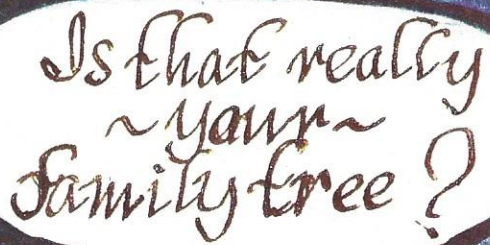 Is that really
~your~
family tree?